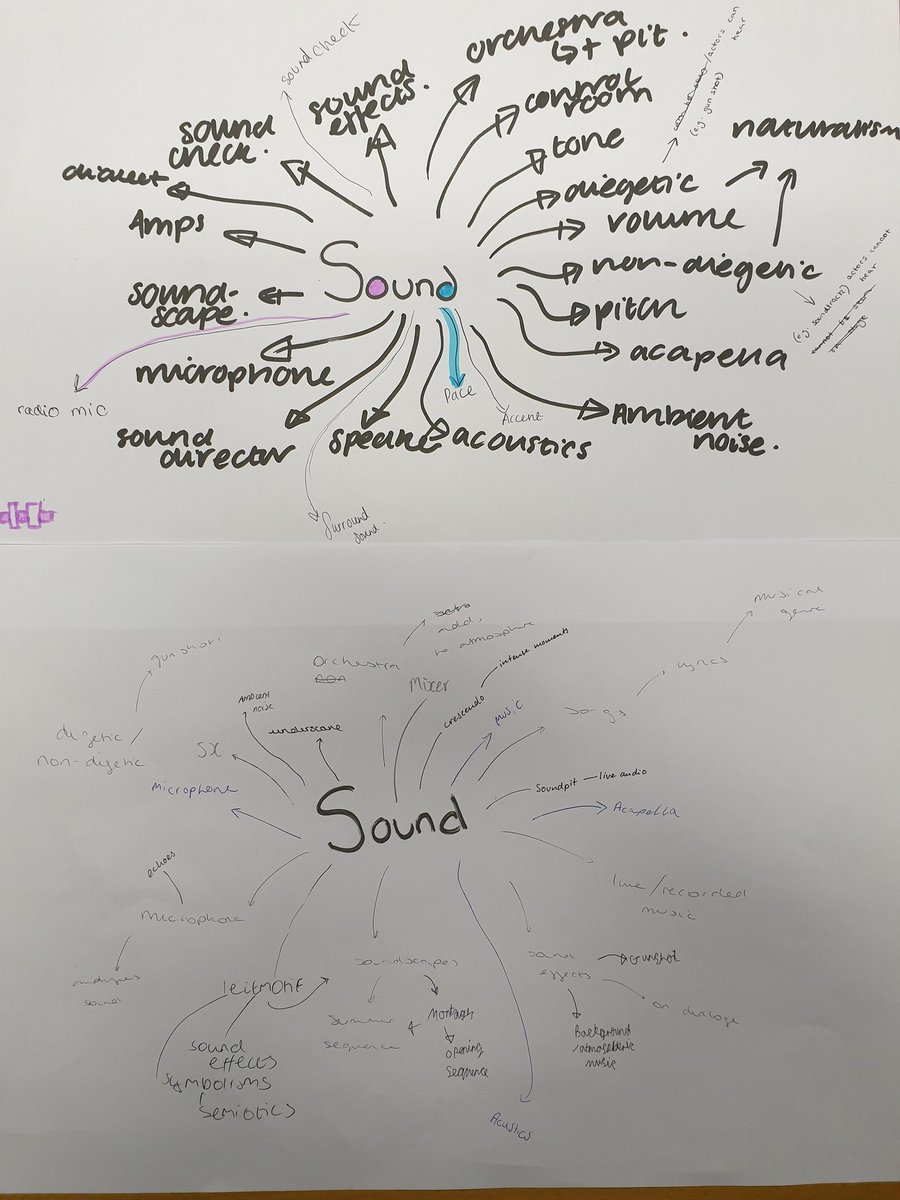 soundcheck
orchestra
↳+ pit.
sound
effects.
control
room
actors can
hear
(e.g. gun shot)
sound
check.
tone
naturalism
dialect
diegetic
Amps
volume
non-diegetic
actors cannot
hear
(e.g. soundtrack)
Sound
sound-
scape.
pitch
acapella
microphone
radio mic
Pace
Accent
Ambient
noise.
sound
director
speaker
acoustics
Surround
Sound.
musical
genre
adds
to atmosphere
gunshot
Orchestra
intense moments
lyrics
Mixer
Ambient
noise
crescendo
music
songs
underscore
digetic /
non-digetic
SX
Soundpit — live audio
microphone
Acapella
Sound
echoes
live/recorded
music
microphone
soundscapes
sound
effects
Gunshot
leitmotif
sound
montages
on dialoge
summer
sequence
opening
sequence
Background
/atmospheric
music
sound
effects
symbolisms
semiotics
Acustics